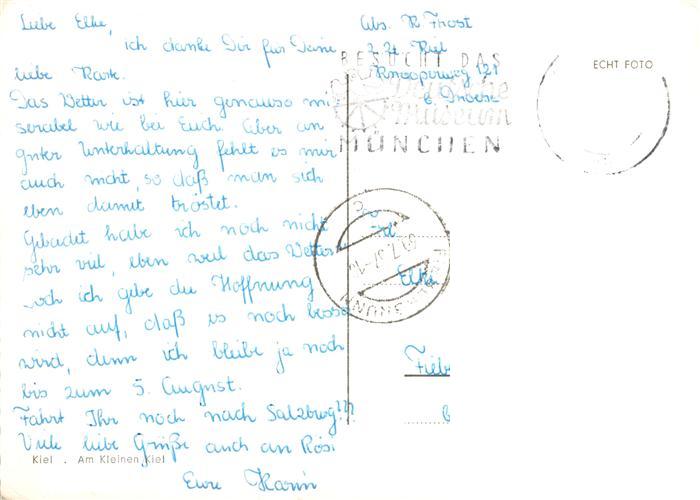 Liebe Elke,
ich danke Dir für Deine
liebe Karte.
Das Wetter ist hier genauso mi-
serabel wie bei Euch. Aber an
guter Unterhaltung fehlt es mir
auch nicht, so daß man sich
eben damit tröstet.
Gebadet habe ich noch nicht
sehr viel, eben weil das Wetter
doch ich gebe die Hoffnung
nicht auf, daß es noch besser
wird, denn ich bleibe ja noch
bis zum 5. August.
Fahrt Ihr noch nach Salzburg???
Viele liebe Grüße auch an Rosi
Eure Karin
Kiel . Am Kleinen Kiel
Abs. K Frost
z. Zt. Kiel
Knooperweg 121
BESUCHT DAS
Deutsche
Museum
MÜNCHEN
ECHT FOTO
Elke
Fieb